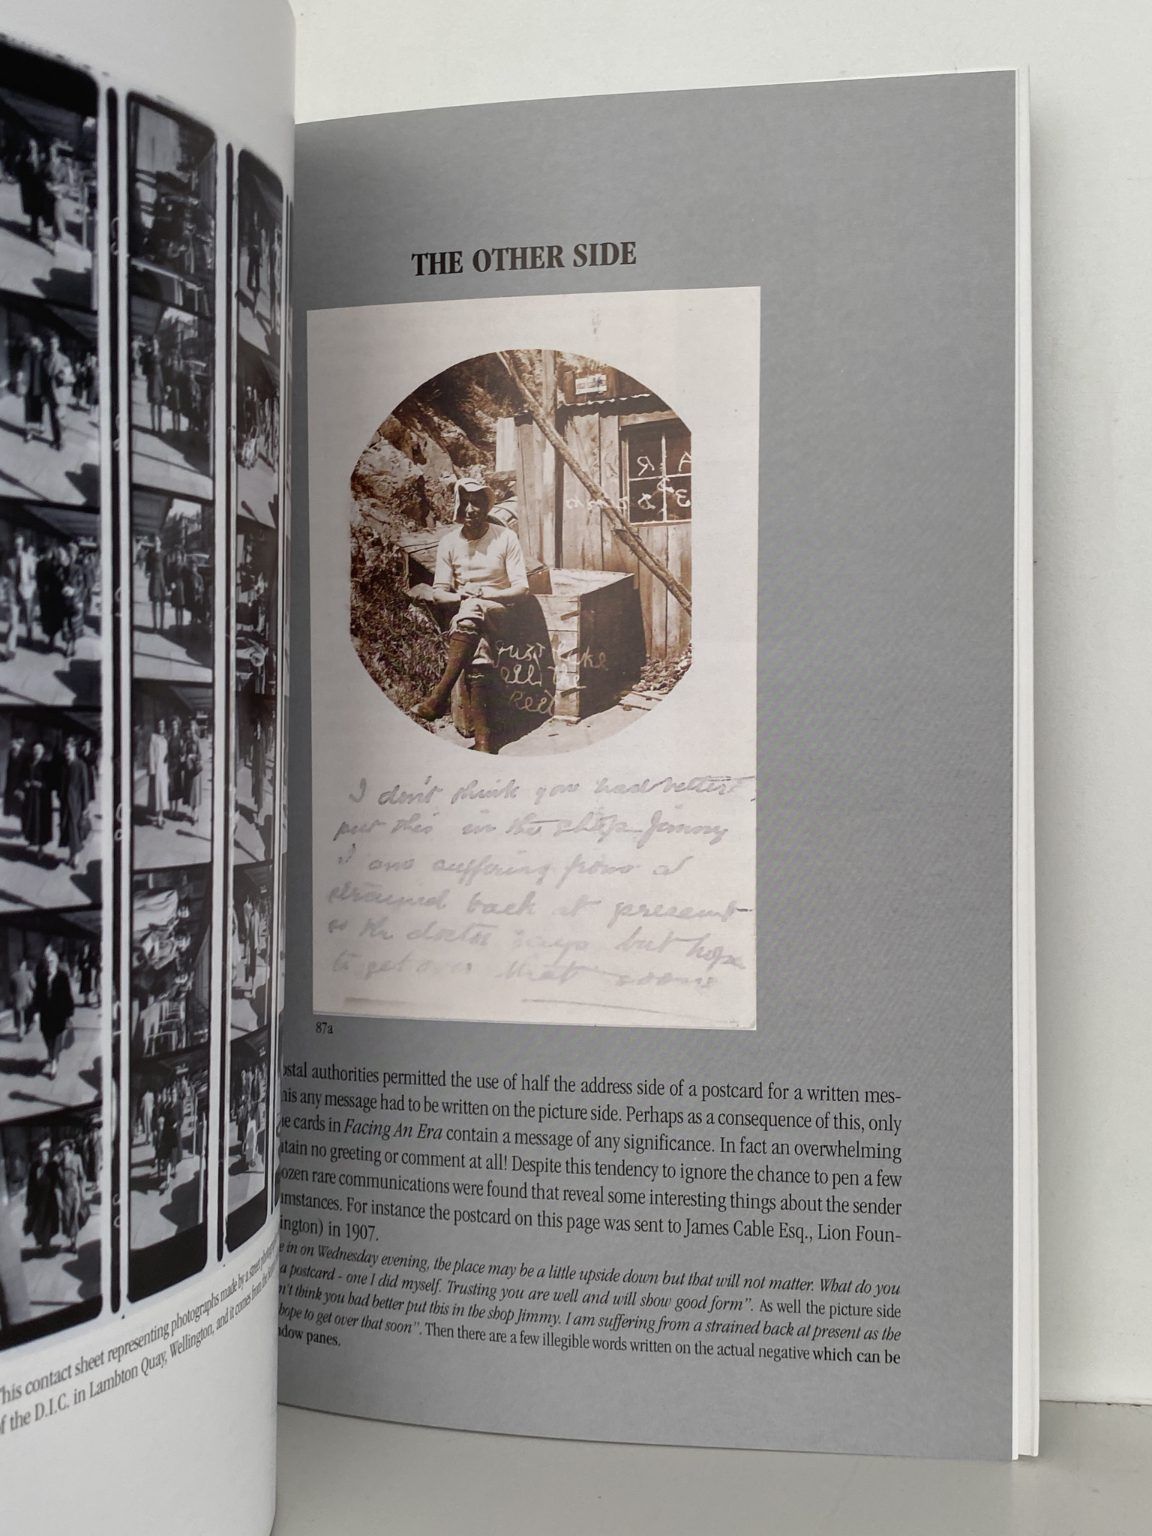 THE OTHER SIDE
Just take
all the
Rest
I don't think you had better
put this in the shop Jimmy
I am suffering from a
strained back at present
as the doctor says but hope
to get over that soon
87a
ostal authorities permitted the use of half the address side of a postcard for a written mes-
his any message had to be written on the picture side. Perhaps as a consequence of this, only
e cards in Facing An Era contain a message of any significance. In fact an overwhelming
ntain no greeting or comment at all! Despite this tendency to ignore the chance to pen a few
ozen rare communications were found that reveal some interesting things about the sender
umstances. For instance the postcard on this page was sent to James Cable Esq., Lion Foun-
ington) in 1907.
e in on Wednesday evening, the place may be a little upside down but that will not matter. What do you
a postcard - one I did myself. Trusting you are well and will show good form". As well the picture side
n't think you had better put this in the shop Jimmy. I am suffering from a strained back at present as the
hope to get over that soon". Then there are a few illegible words written on the actual negative which can be
dow panes.
This contact sheet representing photographs made by a street
of the D.I.C. in Lambton Quay, Wellington, and it comes from the